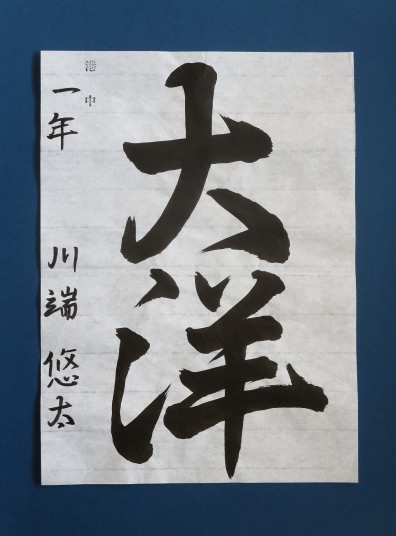 大洋
中
一年 川端悠太